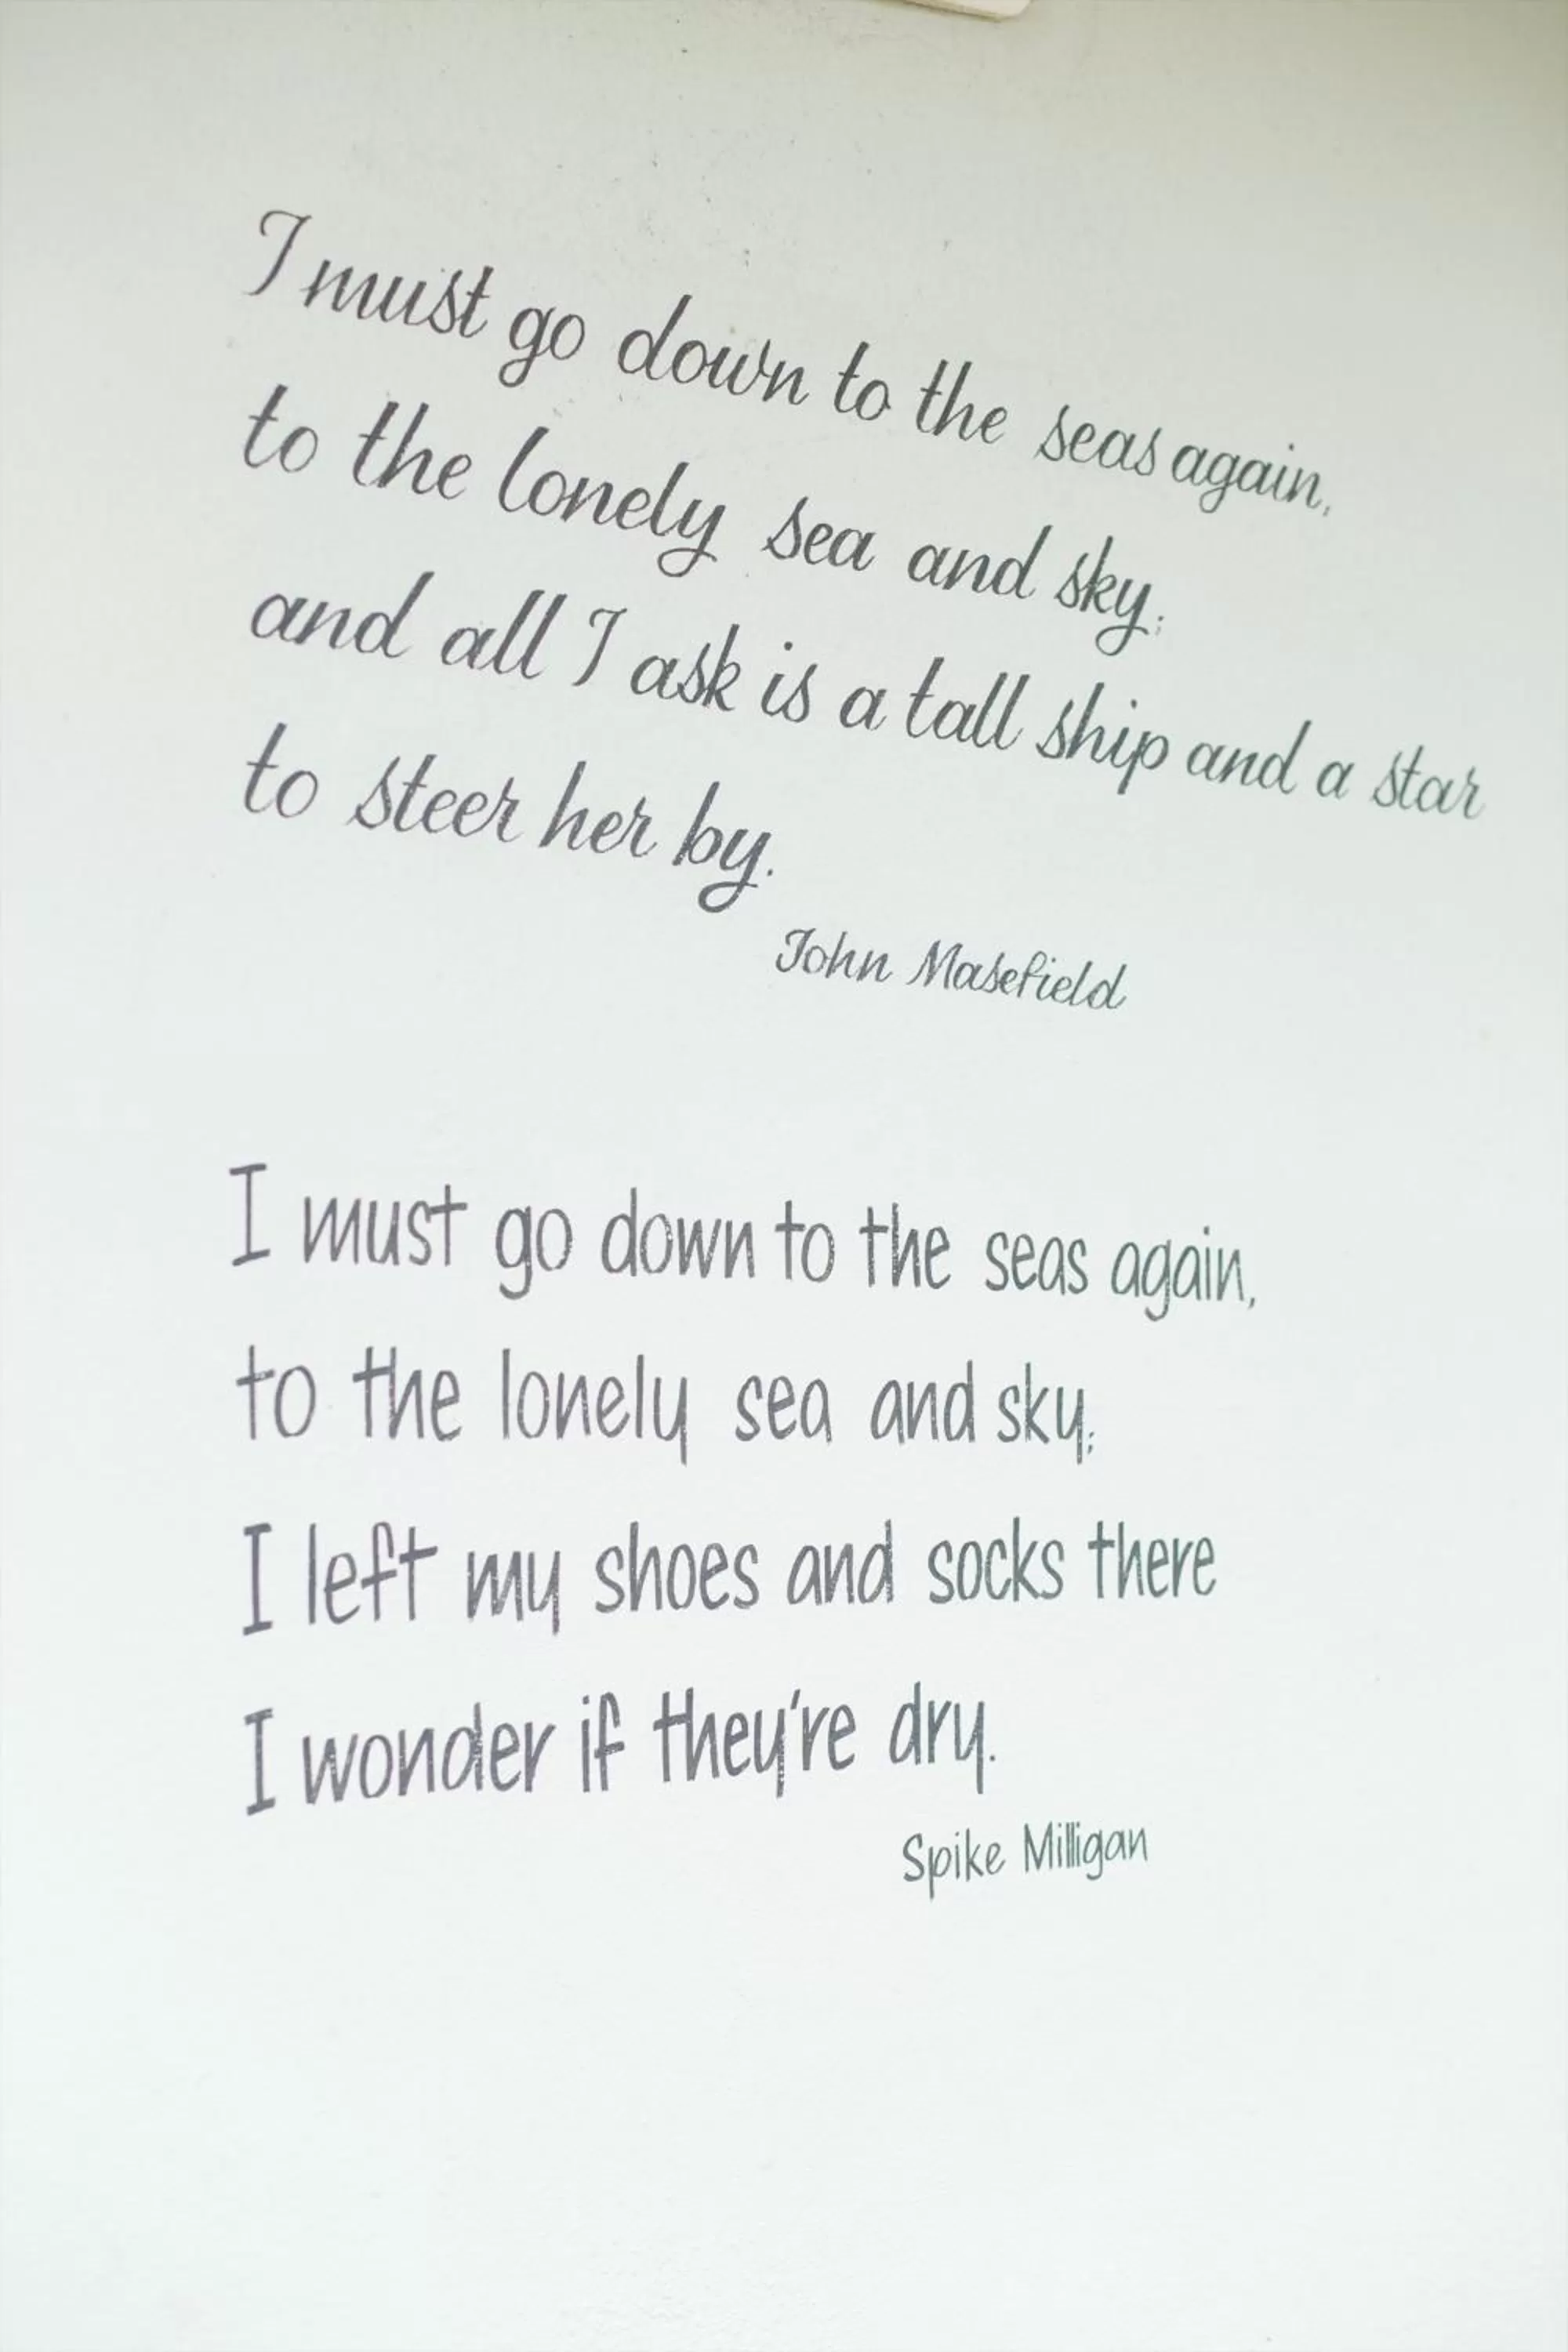 I must go down to the seas again,
to the lonely sea and sky;
and all I ask is a tall ship and a star
to steer her by.
John Masefield
I must go down to the seas again,
to the lonely sea and sky;
I left my shoes and socks there
I wonder if they're dry.
Spike Milligan